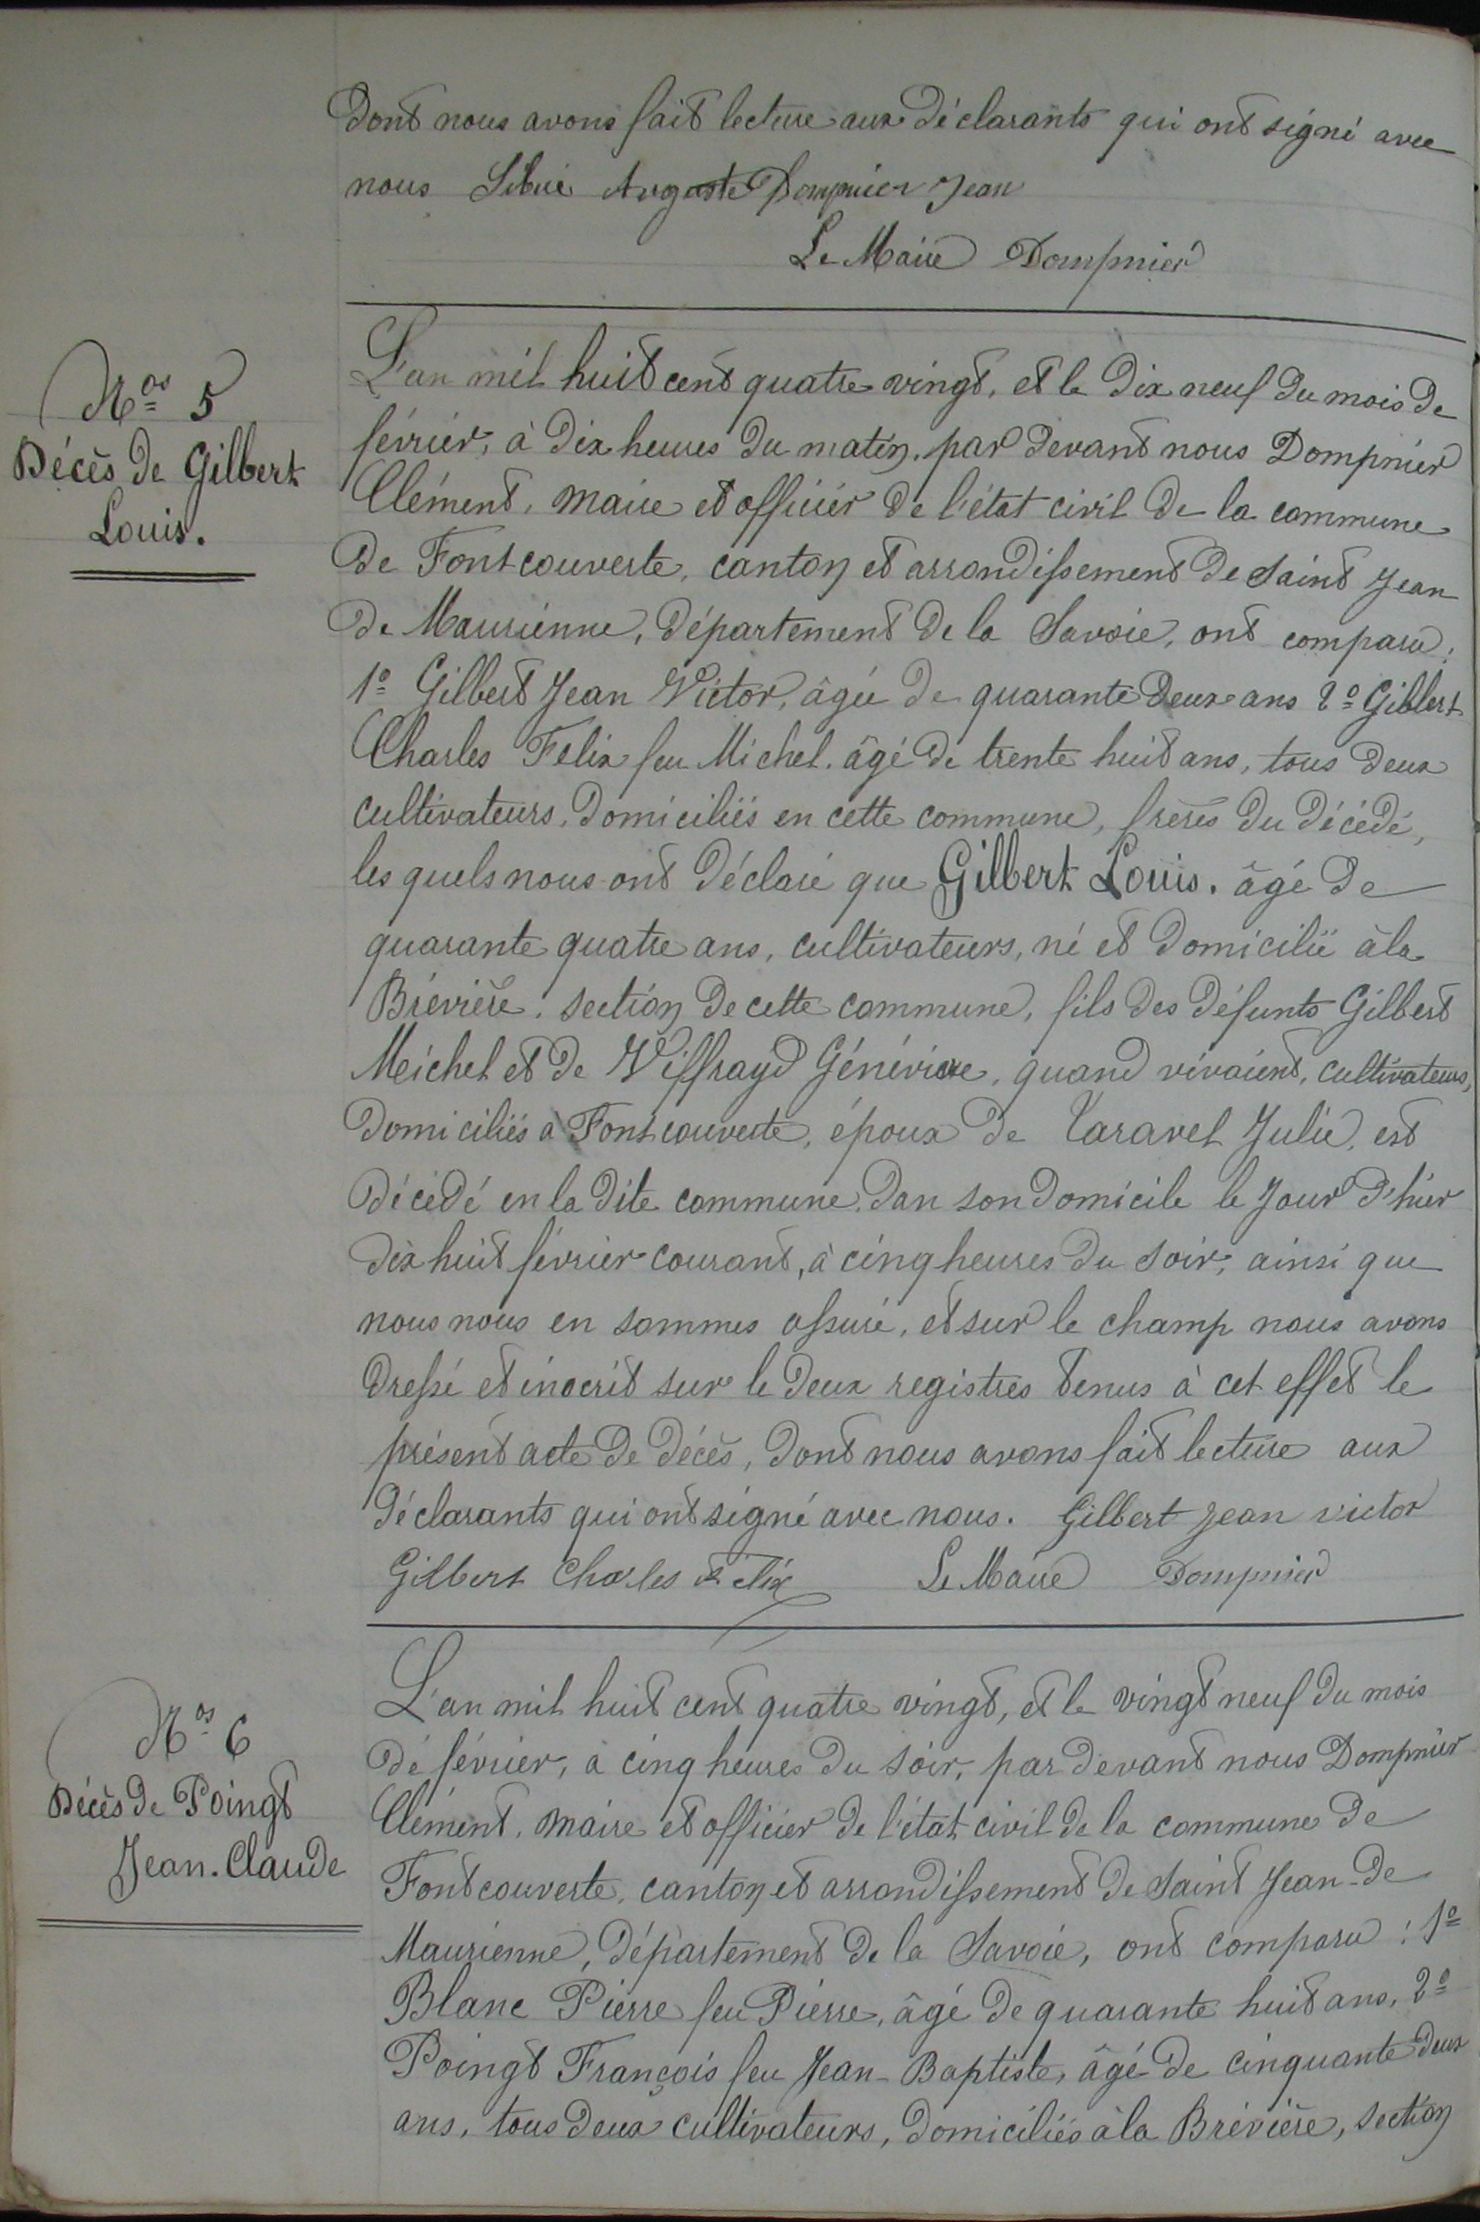 dont nous avons fait lecture aux déclarants qui ont signé avec
nous Auguste Dompnier Jean
Le Maire Dompnier
Nos 5
Décès de Gilbert
Louis.
L'an mil huit cent quatre vingt, et le dix neuf du mois de
février, à dix heures du matin, par devant nous Dompnier
Clément, maire et officier de l'état civil de la commune
de Fontcouverte, canton et arrondissement de Saint Jean
de Maurienne, département de la Savoie, ont comparu:
1º Gilbert Jean Victor, âgé de quarante deux ans 2º Gilbert
Charles Felix feu Michel, âgé de trente huit ans, tous deux
cultivateurs, domiciliés en cette commune, frères du décédé,
les quels nous ont déclaré que Gilbert Louis, âgé de
quarante quatre ans, cultivateurs, né et domicilié à la
Brévière, section de cette commune, fils des défunts Gilbert
Meichel et de Viffrayd Génévieve, quand vivaient, cultivateurs,
domiciliés à Fontcouverte, époux de Taravel Julie, est
décédé en la dite commune, dan son domicile le jour d'hier
dix huit février courant, à cinq heures du soir, ainsi que
nous nous en sommes assuré, et sur le champ nous avons
dressé et inscrit sur le deux registres tenus à cet effet le
présent acte de décès, dont nous avons fait lecture aux
déclarants qui ont signé avec nous. Gilbert jean victor
Gilbert Charles Félix Le Maire Dompnier
Nos 6
Décès de Poingt
Jean-Claude
L'an mil huit cent quatre vingt, et le vingt neuf du mois
de février, à cinq heures du soir, par devant nous Dompnier
Clément, maire et officier de l'état civil de la commune de
Fontcouverte, canton et arrondissement de Saint Jean-de
Maurienne, département de la Savoie, ont comparu: 1º
Blanc Pierre feu Pierre, âgé de quarante huit ans, 2º
Poingt François feu Jean-Baptiste, âgé de cinquante deux
ans, tous deux cultivateurs, domiciliés à la Brévière, section